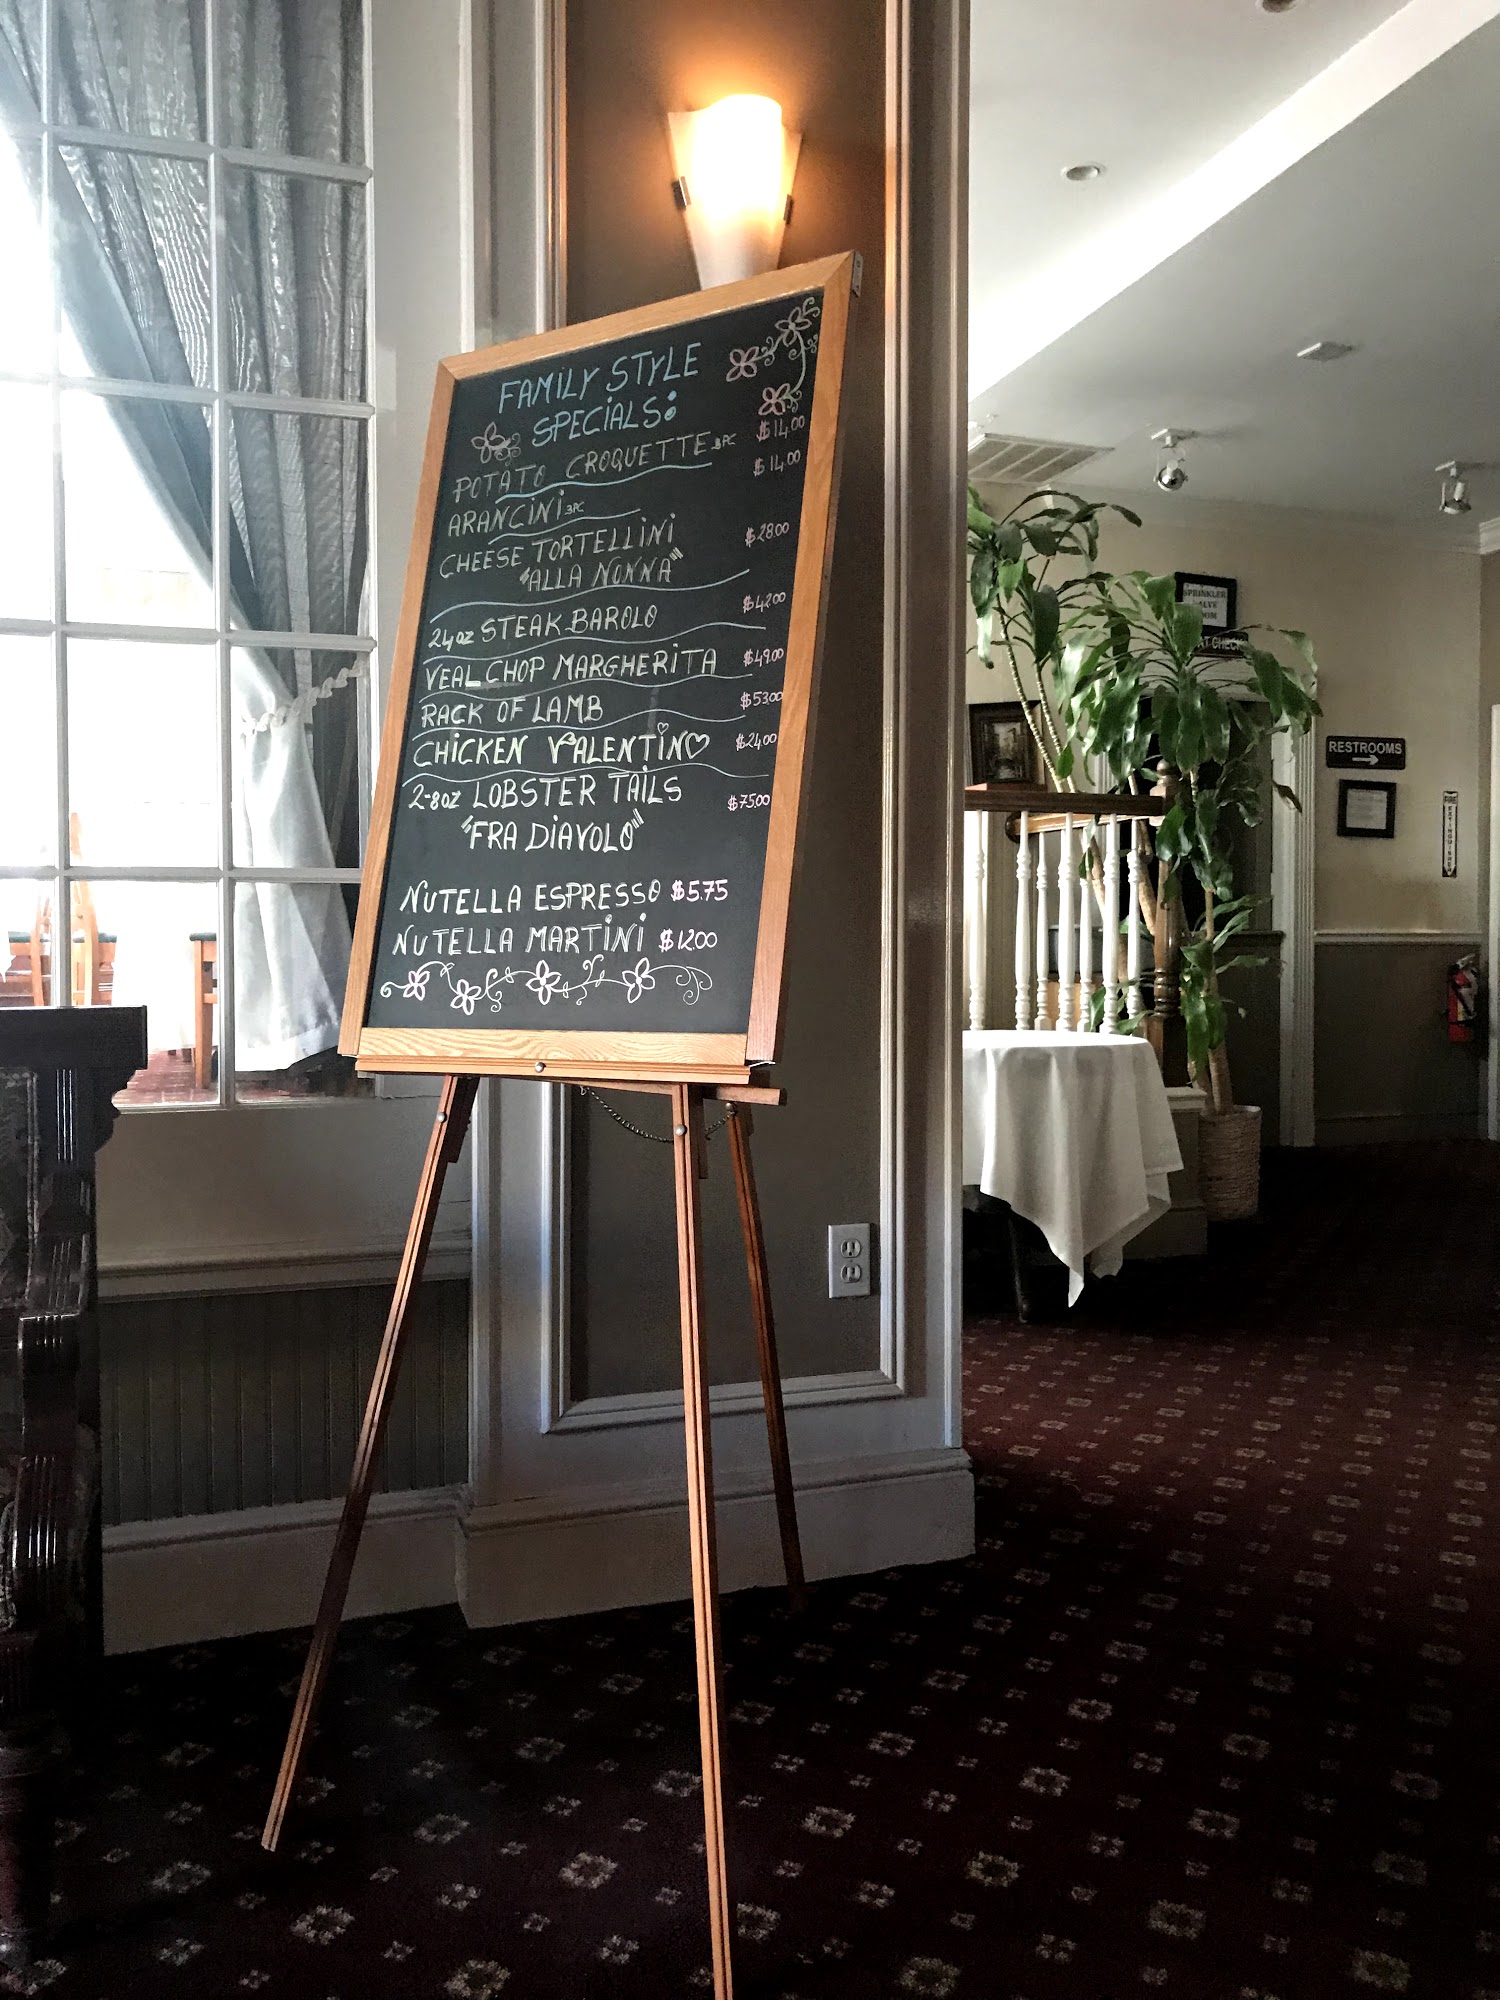 FAMILY STYLE
SPECIALS:
POTATO CROQUETTE 3PC $14.00
ARANCINI 3PC $14.00
CHEESE TORTELLINI $28.00
"ALLA NONNA"
24oz STEAK BAROLO $42.00
VEAL CHOP MARGHERITA $49.00
RACK OF LAMB $53.00
CHICKEN VALENTINO $24.00
2-8oz LOBSTER TAILS $75.00
"FRA DIAVOLO"
NUTELLA ESPRESSO $5.75
NUTELLA MARTINI $12.00
SPRINKLER
CHECK
RESTROOMS
FIRE EXTINGUISHER